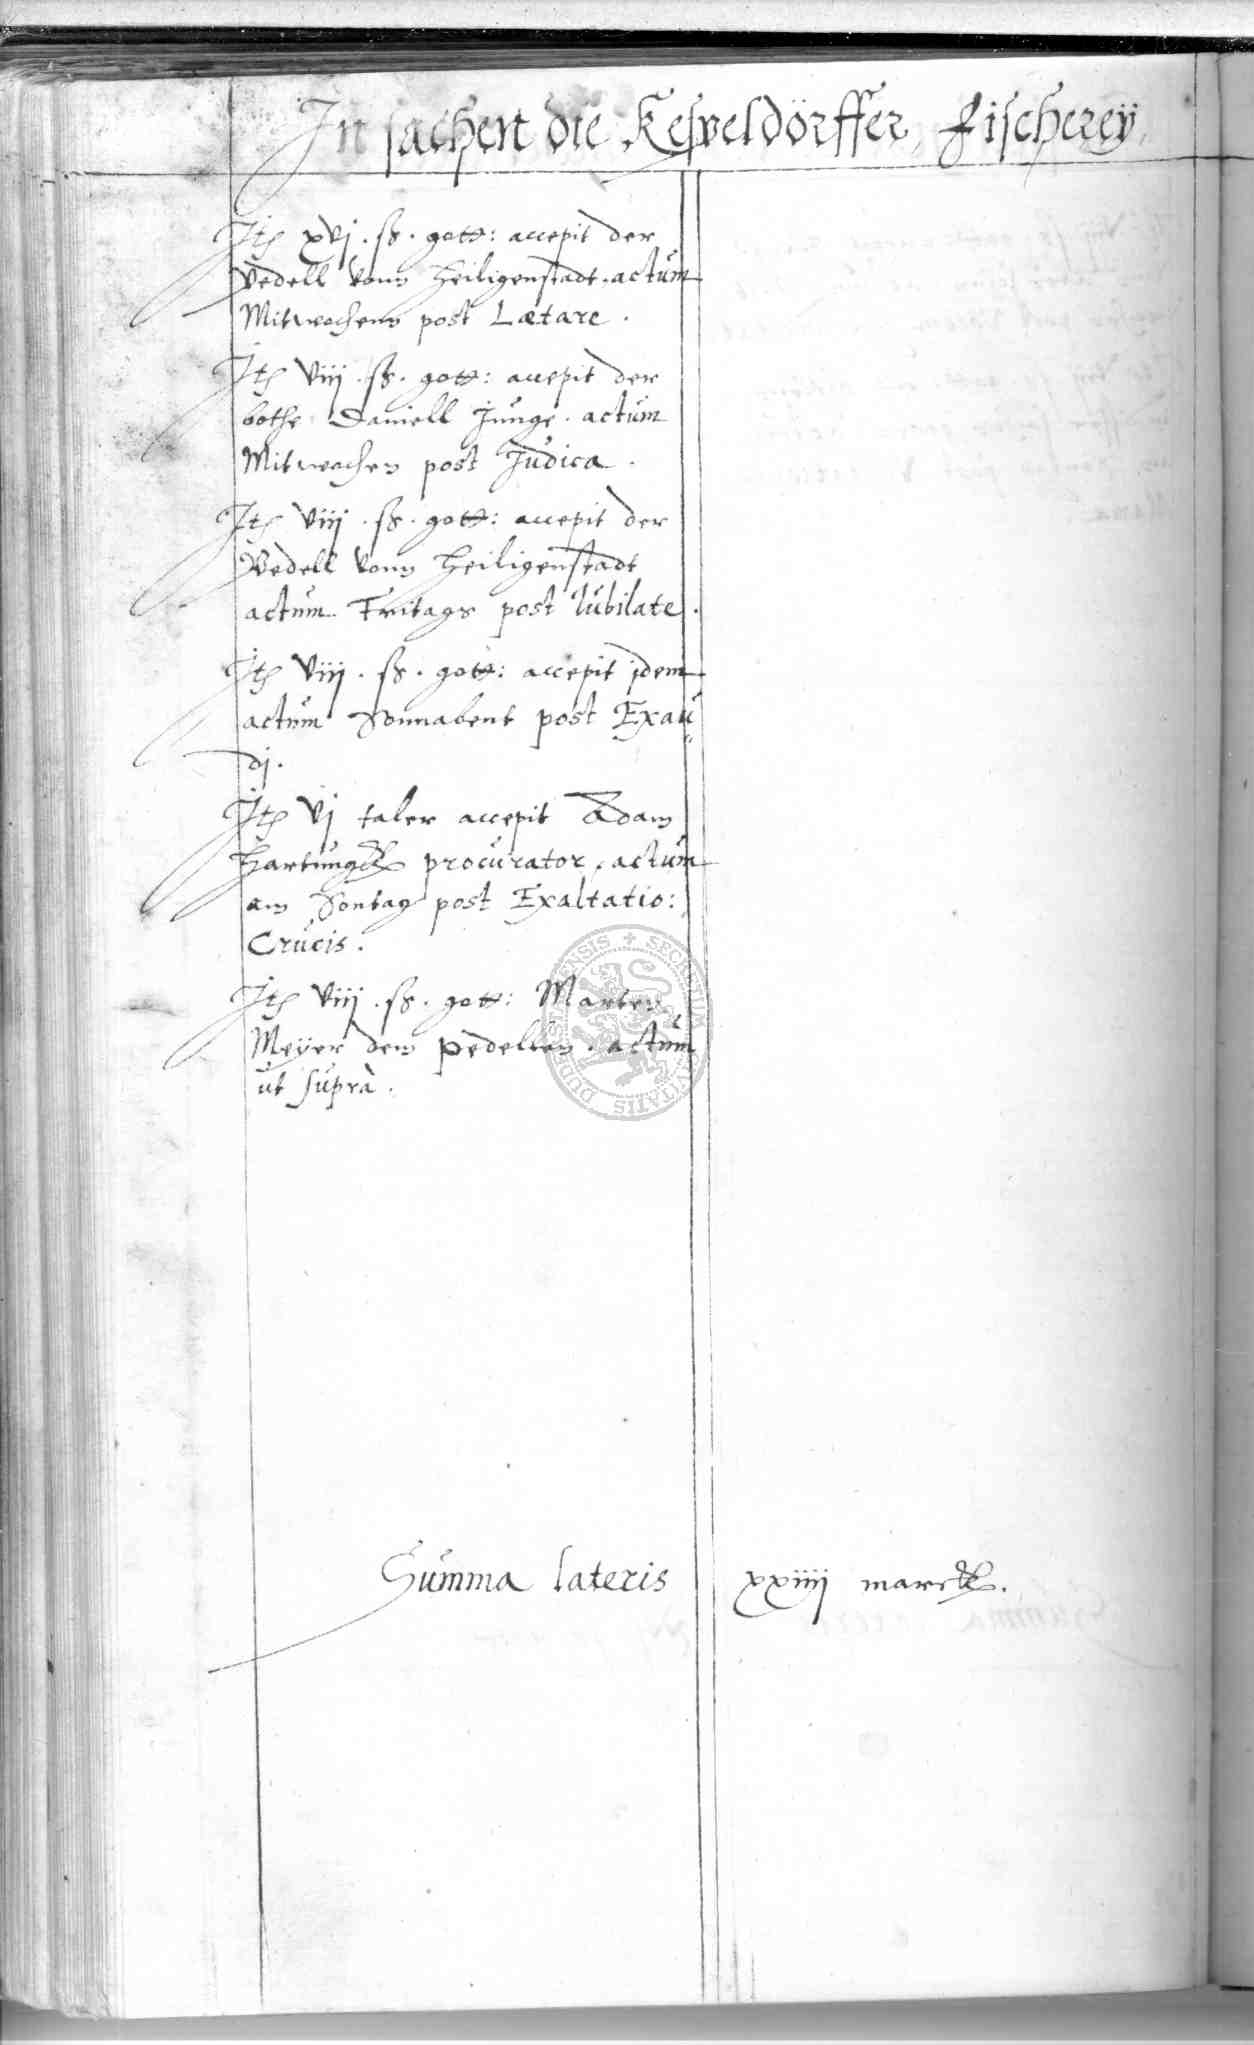 In sachen die Kespeldörffer, Fischerey,
Ith xvj . ß . gott: accepit der
Pedell vonn Heiligenstadt . actum
Mitwochens post Lætare .
Ith viij . ß . gott: accepit der
bothe Daniell Junge . actum
Mitwochen post Judica .
Ith viij . ß . gott: accepit der
Pedell vonn Heiligenstadt
actum Fritags post Iubilate .
Ith viij . ß . gott: accepit idem
actum Sonnabent post Exau
dj .
Ith vj taler accepit Adam
Hartungk procurator . actum
am Sontag post Exaltatio:
Crucis .
Ith viij . ß . gott: Marten
Meyer dem pedellen . actum
ut suprà .
Summa lateris xxiiij marck .
SECRETUM CIVITATIS